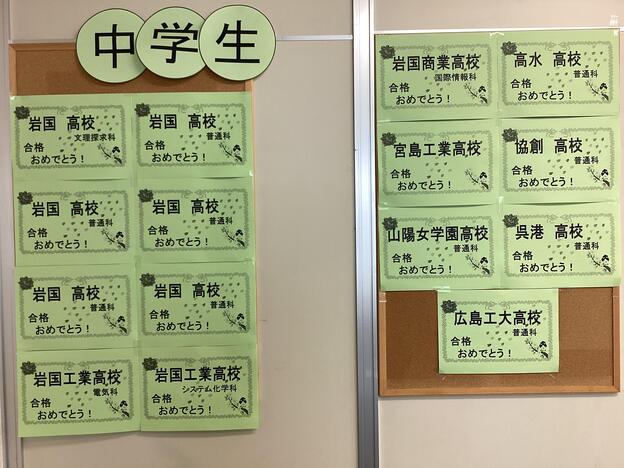 中学生
岩国 高校
文理探求科
合格
おめでとう!
岩国 高校
普通科
合格
おめでとう!
岩国 高校
普通科
合格
おめでとう!
岩国 高校
普通科
合格
おめでとう!
岩国 高校
普通科
合格
おめでとう!
岩国 高校
普通科
合格
おめでとう!
岩国工業高校
電気科
合格
おめでとう!
岩国工業高校
システム化学科
合格
おめでとう!
岩国商業高校
国際情報科
合格
おめでとう!
高水 高校
普通科
合格
おめでとう!
宮島工業高校
合格
おめでとう!
協創 高校
普通科
合格
おめでとう!
山陽女学園高校
普通科
合格
おめでとう!
呉港 高校
普通科
合格
おめでとう!
広島工大高校
普通科
合格
おめでとう!